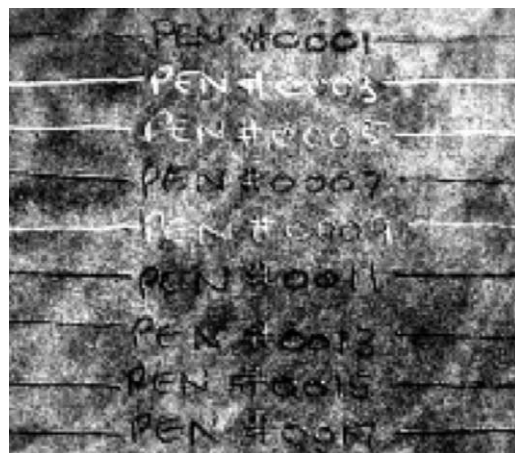 PEN #0001
PEN #0003
PEN #0005
PEN #0007
PEN #0009
PEN #0011
PEN #0013
PEN #0015
PEN #0017